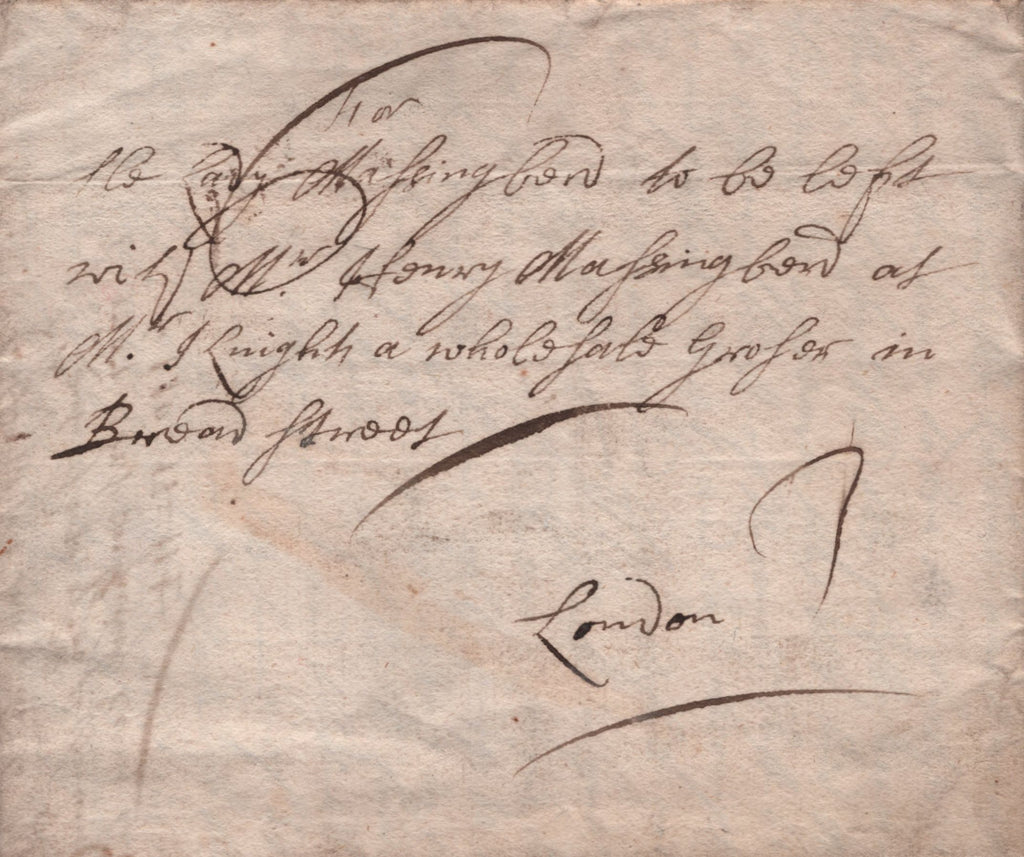 For
the Lady Massingberd to be left
with Mr. Henry Massingberd at
Mr. Knights a wholesale Groser in
Bread street
London